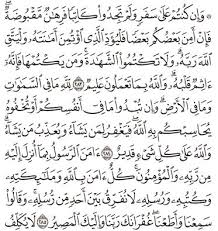 وَإِن كُنتُمْ عَلَىٰ سَفَرٍ وَلَمْ تَجِدُوا۟ كَاتِبًا فَرِهَٰنٌ مَّقْبُوضَةٌ ۖ
فَإِنْ أَمِنَ بَعْضُكُم بَعْضًا فَلْيُؤَدِّ ٱلَّذِى ٱؤْتُمِنَ أَمَٰنَتَهُۥ وَلْيَتَّقِ
ٱللَّهَ رَبَّهُۥ ۗ وَلَا تَكْتُمُوا۟ ٱلشَّهَٰدَةَ ۚ وَمَن يَكْتُمْهَا فَإِنَّهُۥٓ
ءَاثِمٌ قَلْبُهُۥ ۗ وَٱللَّهُ بِمَا تَعْمَلُونَ عَلِيمٌ ٢٨٣ لِّلَّهِ مَا فِى ٱلسَّمَٰوَٰتِ
وَمَا فِى ٱلْأَرْضِ ۗ وَإِن تُبْدُوا۟ مَا فِىٓ أَنفُسِكُمْ أَوْ تُخْفُوهُ
يُحَاسِبْكُم بِهِ ٱللَّهُ ۖ فَيَغْفِرُ لِمَن يَشَآءُ وَيُعَذِّبُ مَن يَشَآءُ ۗ
وَٱللَّهُ عَلَىٰ كُلِّ شَىْءٍ قَدِيرٌ ٢٨٤ ءَامَنَ ٱلرَّسُولُ بِمَآ أُنزِلَ إِلَيْهِ
مِن رَّبِّهِۦ وَٱلْمُؤْمِنُونَ ۚ كُلٌّ ءَامَنَ بِٱللَّهِ وَمَلَٰٓئِكَتِهِۦ
وَكُتُبِهِۦ وَرُسُلِهِۦ لَا نُفَرِّقُ بَيْنَ أَحَدٍ مِّن رُّسُلِهِۦ ۚ وَقَالُوا۟
سَمِعْنَا وَأَطَعْنَا ۖ غُفْرَانَكَ رَبَّنَا وَإِلَيْكَ ٱلْمَصِيرُ ٢٨٥ لَا يُكَلِّفُ